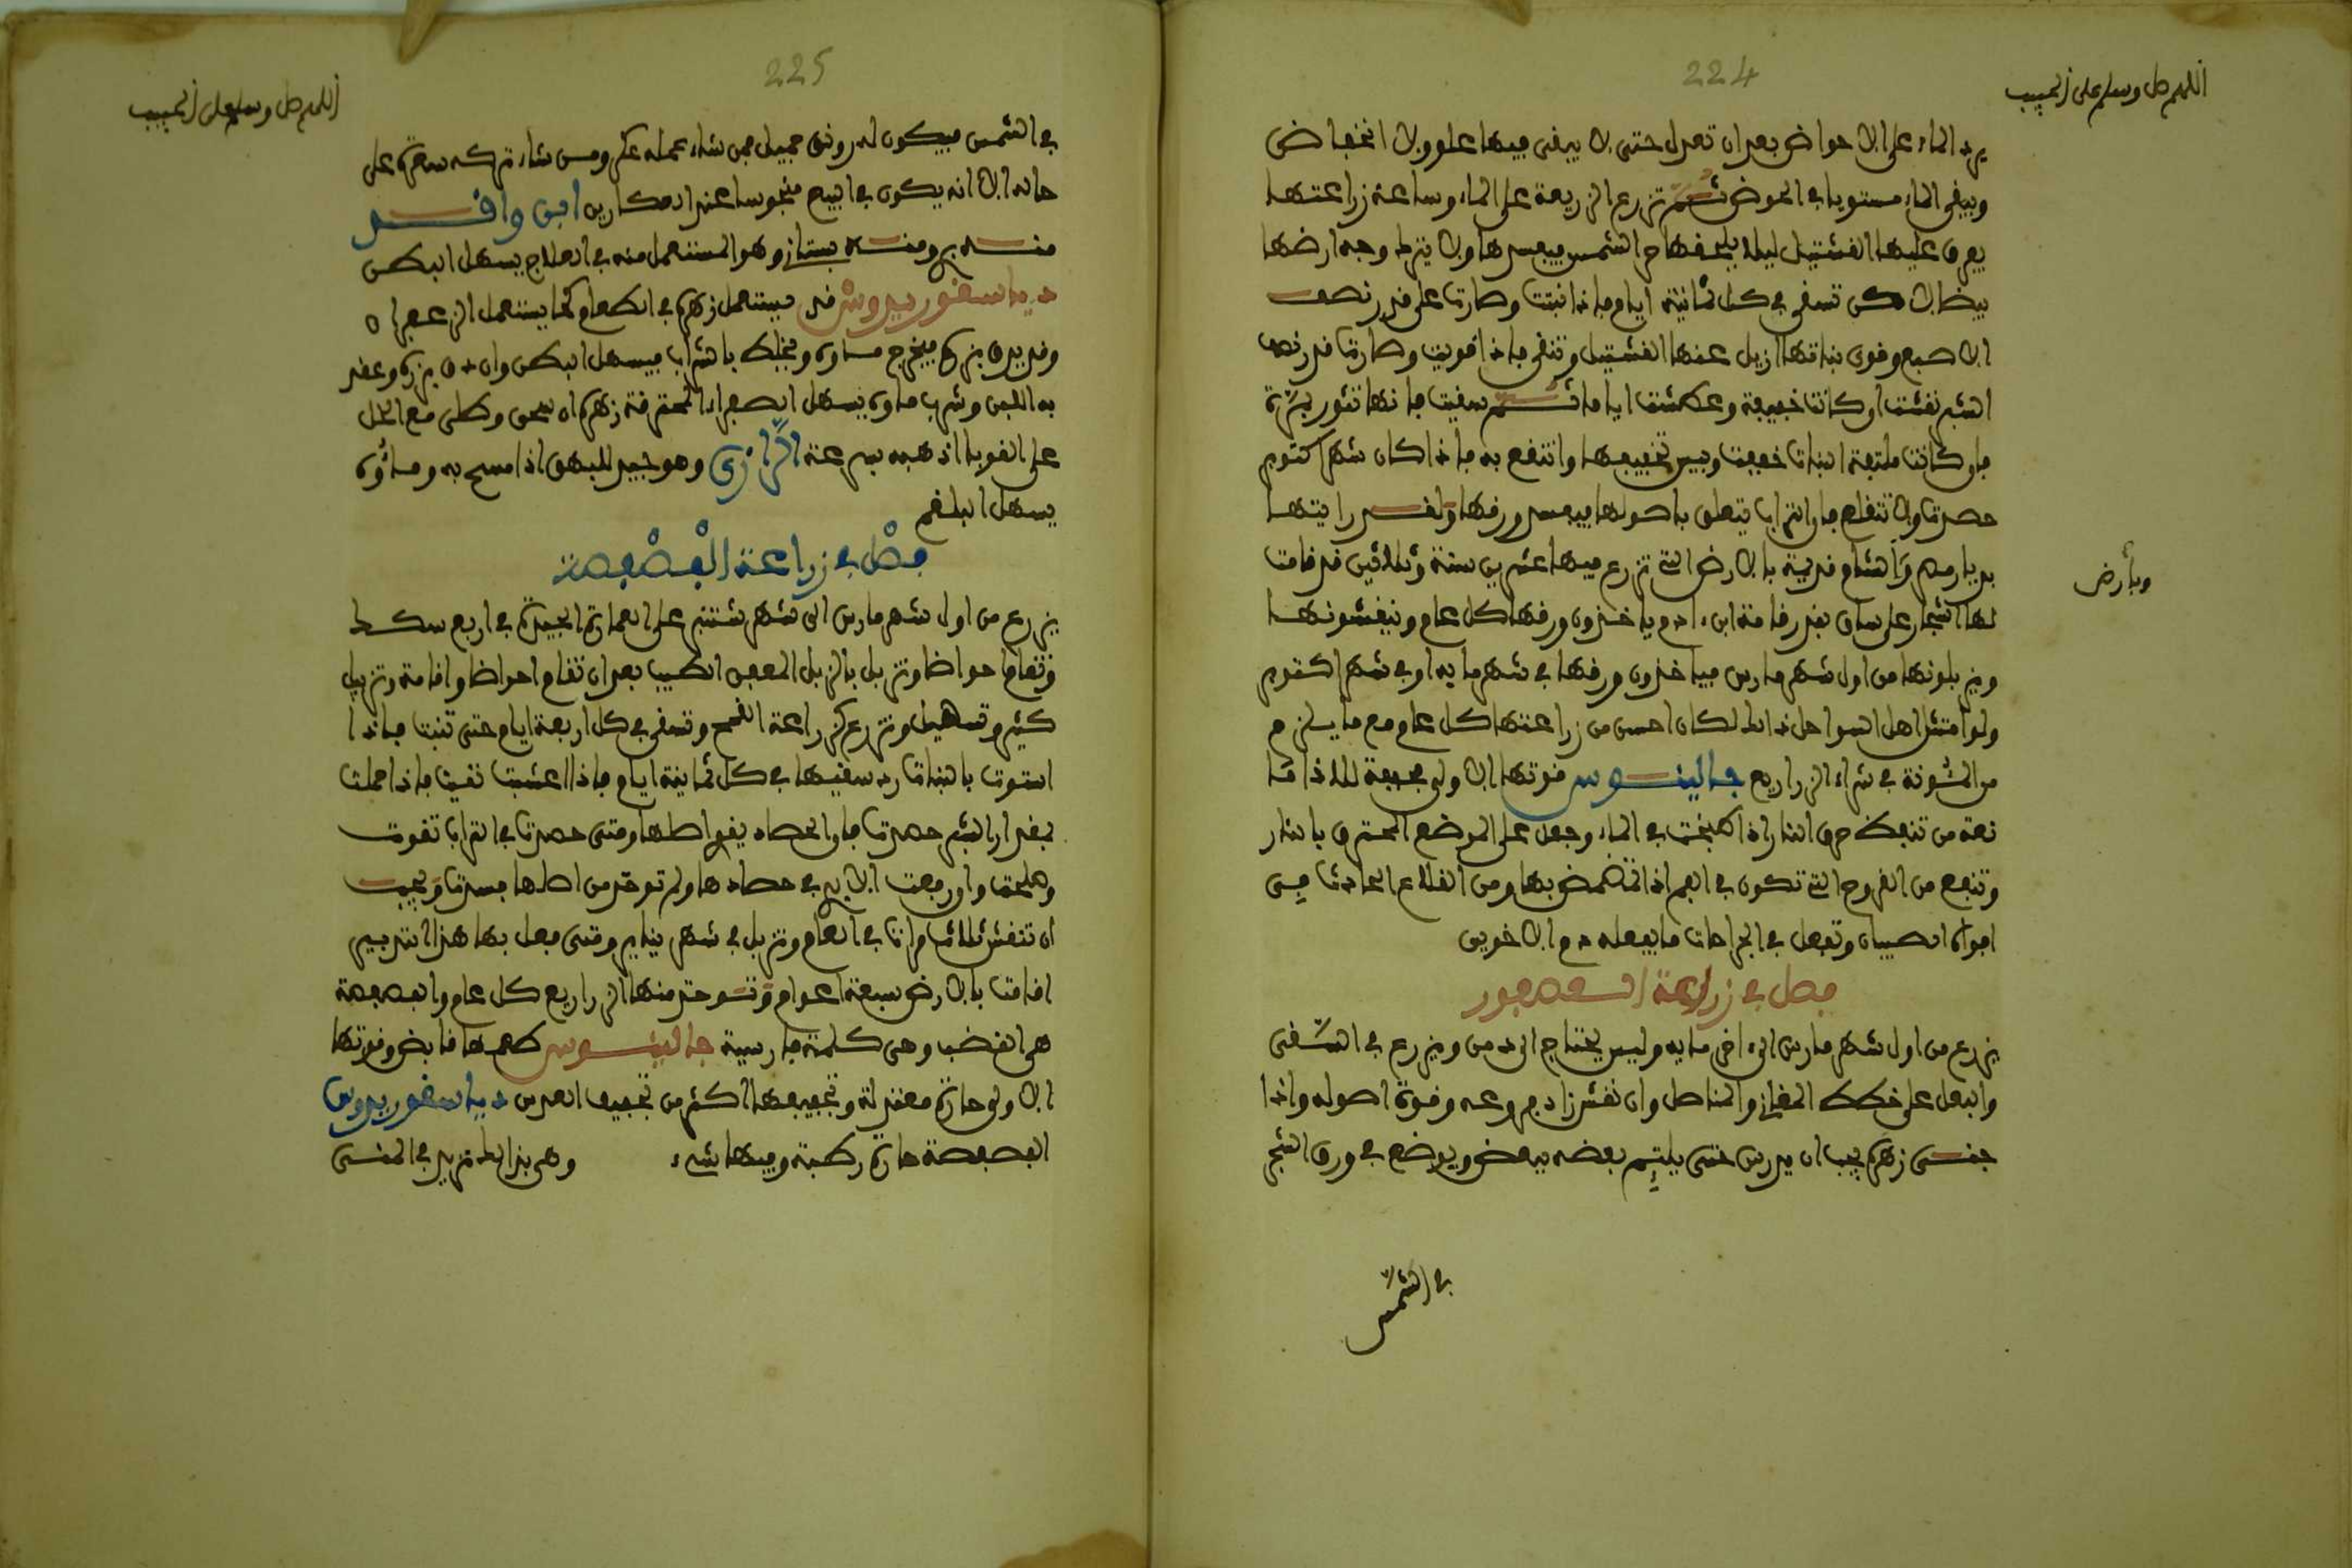 224
اللهم صل وسلم على الحبيب
يرد الماء على الاحواض بعد ان تعدل حتى لا يبقى فيها علو ولا انخفاض
ويبقى الماء مستويا في الحوض ثم تزرع الزريعة على الماء وساعة زراعتها
يعرى عليها القشتيل ليلا يلحقها حر الشمس فيفسدها ولا يترك وجه ارضها
بيضا لاكن تسقى في كل ثمانية ايام فاذا نبتت وصارت على قدر نصف
الاصبع وقوى نباتها ازيل عنها القشتيل وتنقى فاذا قويت وصارت قدر نصف
الشبر نقشت او كانت خفيفة وعطشت اياما ثم سقيت فانها تثور بسرعة
فان كانت ملتفة النبات خففت وبيس تخفيفها وانتفع به فاذا كان شهر اكتوبر
حصدت ولا تقلع فان التراب يتعلق باصولها فيفسد ورقها ولقد رايتها
بديار مصر والشام قديمة بالارض التي تزرع فيها عشرين سنة وثلاثين قد قامت
وبأرض
لها اشجار على ساق بقدر قامة ابن ادم ياخذون ورقها كل عام وينقشونها
ويزبلونها من اول شهر مارس فياخذون ورقها في شهر مايه او في شهر اكتوبر
ولو امتثل اهل السواحل ذالك لكان احسن من زراعتها كل عام مع ما يلزم
من المشونة في شراء الزراريع جالينوس قوتها الاولى مجففة للاذا قا
نعة من تنفط حرق النار اذا طبخت في الماء وجعل على الموضع المحترق بالنار
وتنفع من القروح التي تكون في الفم اذا تمضمض بها ومن القلاع الحادث في
افواه الصبيان وتفعل في الجراحات ما يفعله دم الاخوين
فصل في زراعة العصفور
يزرع من اول شهر مارس الى اخر مايه وليس يحتاج الى دمن ويزرع في السقى
والبعل على خطط المفاز والمناصل وان نقش زاد فروعه وقوة اصوله واذا
جنى زهره يجب ان يدرس حتى يلتئم بعضه ببعض ويوضع في ورق الشجر
في الشمس
225
اللهم صل وسلم على الحبيب
في الشمس فيكون له رونق جميل فمن شاء عمله عكر ومن شاء تركه سعرة على
حاله الا انه يكون في البيع منحوسا عند العطارين ابن وافد
منه بري ومنه بستاني وهو المستعمل منه في العلاج يسهل البطن
دياسقوريدوش قد يستعمل زهره في الطعام كما يستعمل الزعفران
وقد يدق بزره فيخرج ماوه ويخلط بالشراب فيسهل البطن وان دق بزره وعقد
به اللبن وشرب ماوه يسهل الصفراء المحترقة زهره ان سحق وطلى مع الخل
على القوبا اذهبه بسرعة الرازي وهو جيد للبهق اذا مسح به وماؤه
يسهل البلغم
فصل في زراعة الفصفصة
يزرع من اول شهر مارس الى شهر شتنبر على العمارة الجيدة في اربع سكك
وتقام احواضا وتزبل بالزبل المعفن الطيب بعد ان تقام احواضا واقامة وتزبيل
كثير وتسهيل وتزرع كزراعة القمح وتسقى في كل اربعة ايام حتى تنبت فاذا
استوت بالنبات رد سقيها في كل ثمانية ايام فاذا اعشبت نقيت فاذا حملت
بمقدار الشبر حصدت فان الحصاد يقوي اصلها ومتى حصدت في التراب تقوت
وهلكت وان رفعت الايدي في حصادها ولم توخذ من اصلها فسدت ويجب
ان تنقش ثلاث مرات في العام وتزبل في شهر يناير ومتى فعل بها هذا التدبير
اقامت بالارض سبعة اعوام وتوخذ منها الزراريع كل عام والفصفصة
هي القضب وهى كلمة فارسية جالينوس طعمها قابض وقوتها
الاولى حارة معتدلة وتجفيفها اكثر من تجفيف العدس دياسقوريدوس
الفصفصة حارة رطبة وفيها شيء وهى بذالك تزيد في المنى